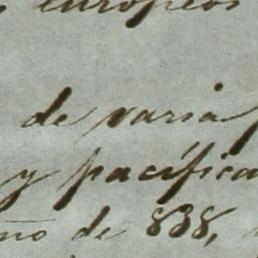 europeos
de varia
y pacífica
de 838,